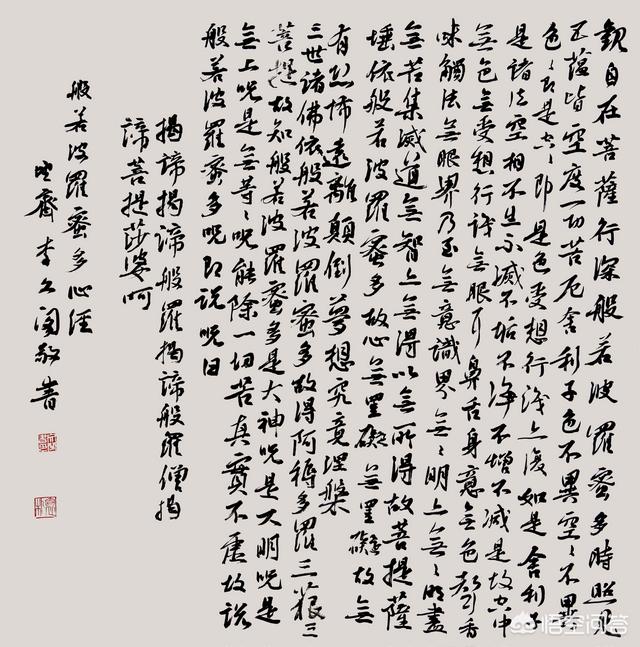 觀自在菩薩行深般若波羅蜜多時照見
五蘊皆空度一切苦厄舍利子色不異空〻不異
色〻即是空〻即是色受想行識亦復如是舍利子
是諸法空相不生不滅不垢不淨不增不減是故空中
無色無受想行識無眼耳鼻舌身意無色聲香
味觸法無眼界乃至無意識界無〻明亦無〻明盡
無苦集滅道無智亦無得以無所得故菩提薩
埵依般若波羅蜜多故心無罣礙無罣礙故無
有恐怖遠離顛倒夢想究竟涅槃
三世諸佛依般若波羅蜜多故得阿耨多羅三藐三
菩提故知般若波羅蜜多是大神咒是大明咒是
無上咒是無等〻咒能除一切苦真實不虛故說
般若波羅蜜多咒即說咒曰
揭諦揭諦般羅揭諦般羅僧揭
諦菩提莎婆呵
般若波羅蜜多心經
齋李文閣敬書
悟空问答